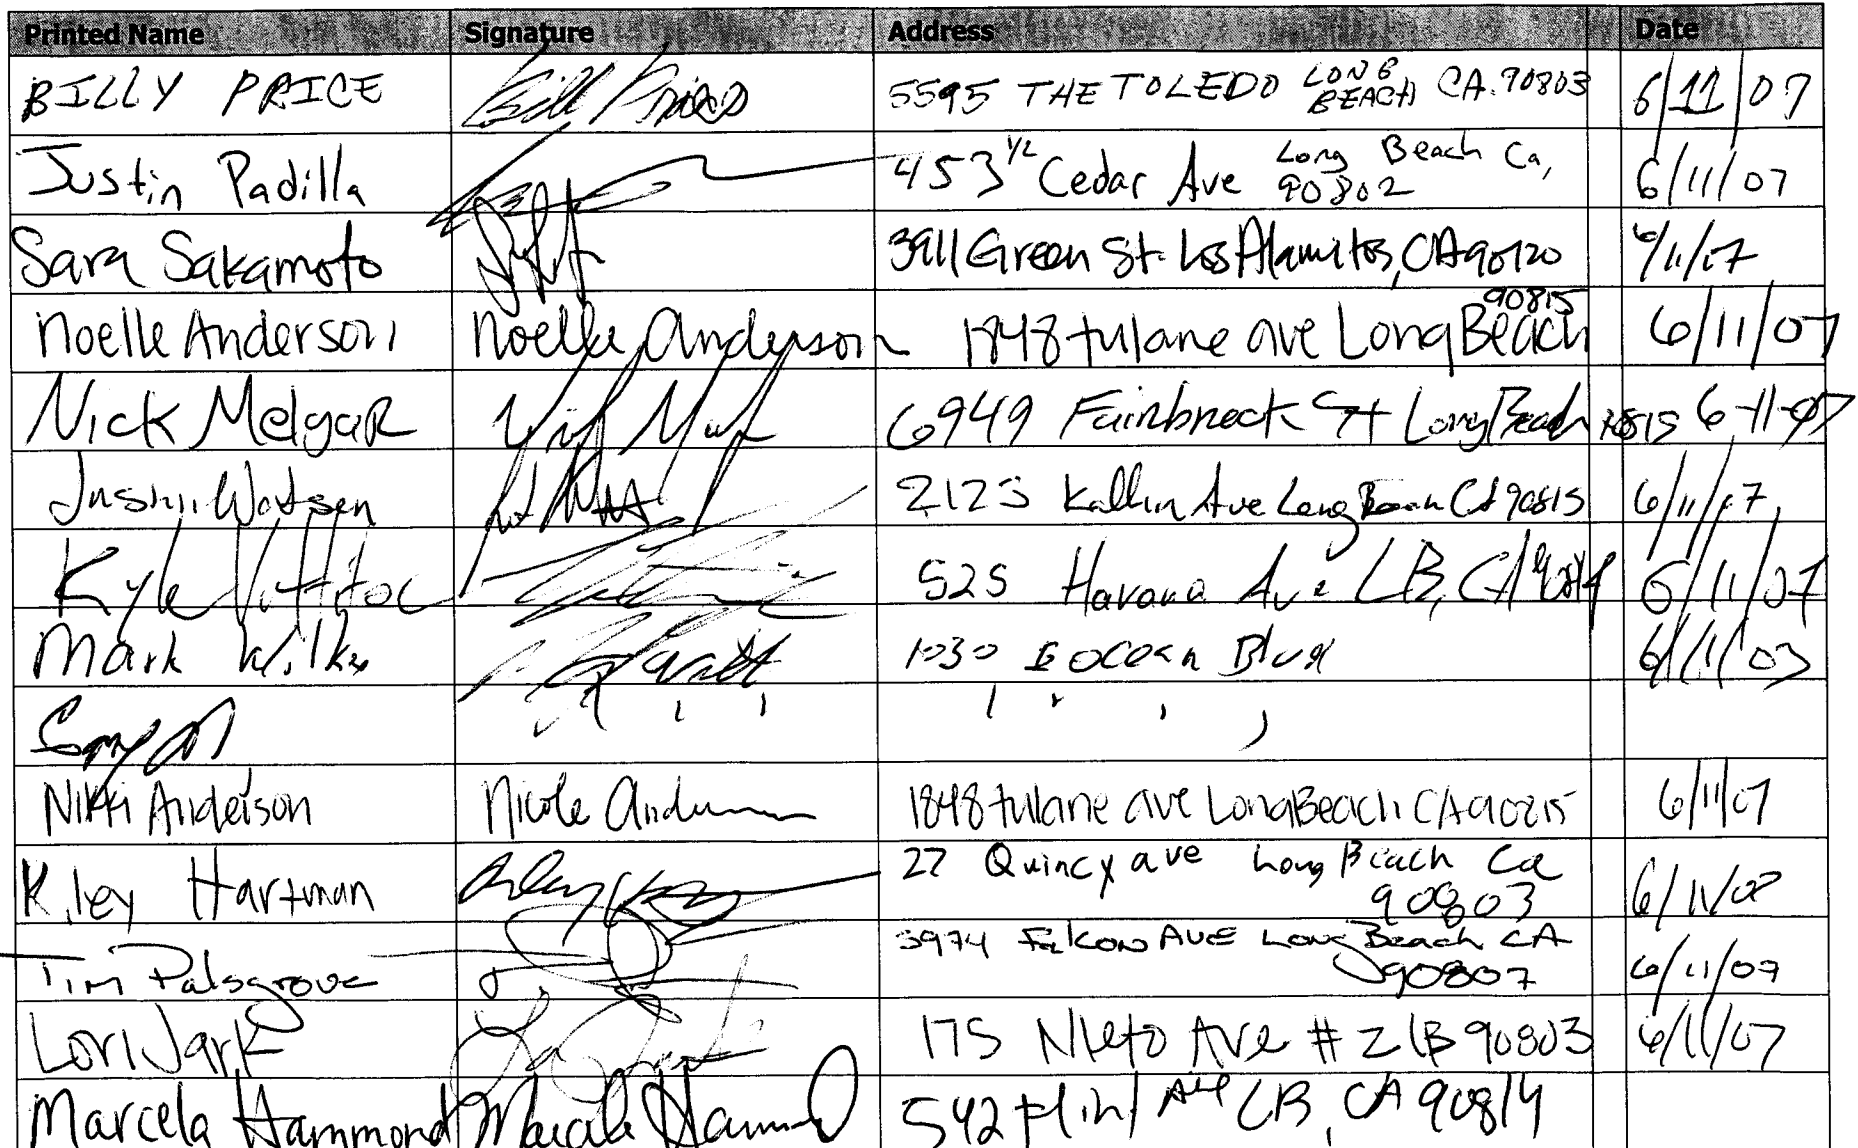 Printed Name Signature Address Date
BILLY PRICE Bill Price 5595 THE TOLEDO LONG BEACH CA. 90803 6/11/07
Justin Padilla 453 1/2 Cedar Ave Long Beach Ca, 90802 6/11/07
Sara Sakamoto 3911 Green St. Los Alamitos, CA 90720 6/11/07
Noelle Anderson Noelle Anderson 1848 tulane ave Long Beach 90815 6/11/07
Nick Melgar 6949 St Long Beach 6-11-07
Watson 2123 Ave Long Beach CA 90815 6/11/07
Kyle 525 Havana Ave LB, CA 90814 6/11/07
Mark 1030 E Ocean Blvd 6/11/03
Nikki Anderson Nicole Anderson 1848 tulane ave Long Beach CA 90815 6/11/07
Kiley Hartman 27 Quincy ave Long Beach Ca 90803 6/11/07
Tim Palsgrove 3974 Falcon AVE Long Beach CA 90807 6/11/07
Lori 175 Nieto Ave # 2 LB 90803 6/11/07
Marcela Hammond Marcela Hammond 542 Flint Ave LB, CA 90814